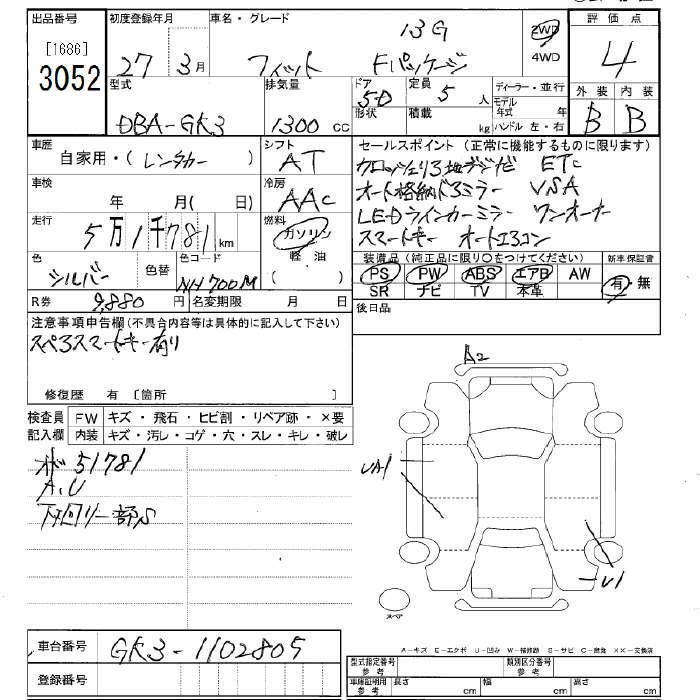 出品番号 初度登録年月 車名・グレード 評価点
[1686]
3052
27 3月 フィット 13G Fパッケージ
2WD
4WD
4
型式 排気量 ドア 定員 ディーラー・並行 外装 内装
DBA-GK3 1300cc 5D 5人
形状 積載 kg
モデル年式 年
ハンドル 左・右
B B
車歴 シフト セールスポイント(正常に機能するものに限ります)
自家用・(レンタカー) AT
カロッツェリア地デジナビ ETC
車検 冷房
年 月( 日) AAC
オート格納ドアミラー VSA
走行 燃料
5万1千781km ガソリン
LEDウインカーミラー ワンオーナー
スマートキー オートエアコン
軽油
( )
色 色替 色コード
シルバー NH700M
装備品(純正品に限り○をつけてください) 新車保証書
PS PW ABS エアB AW
SR ナビ TV 本革
有・無
R券 9,880円 名変期限 月 日
後日品
注意事項申告欄(不具合内容等は具体的に記入して下さい)
スペアスマートキー有り
修復歴 有 〔箇所 〕
検査員 FW キズ・飛石・ヒビ割・リペア跡・×要
記入欄 内装 キズ・汚レ・コゲ・穴・スレ・キレ・破レ
51781
A,U
下回り一部S
A2
UA1
U1
スペア
車台番号 GK3-1102805
登録番号
A-キズ E-エクボ U-凹み W-補修跡 S-サビ C-腐食 ××-交換済
型式指定番号 参考 類別区分番号 参考
車庫証明用 参考 長さ cm 幅 cm 高さ cm